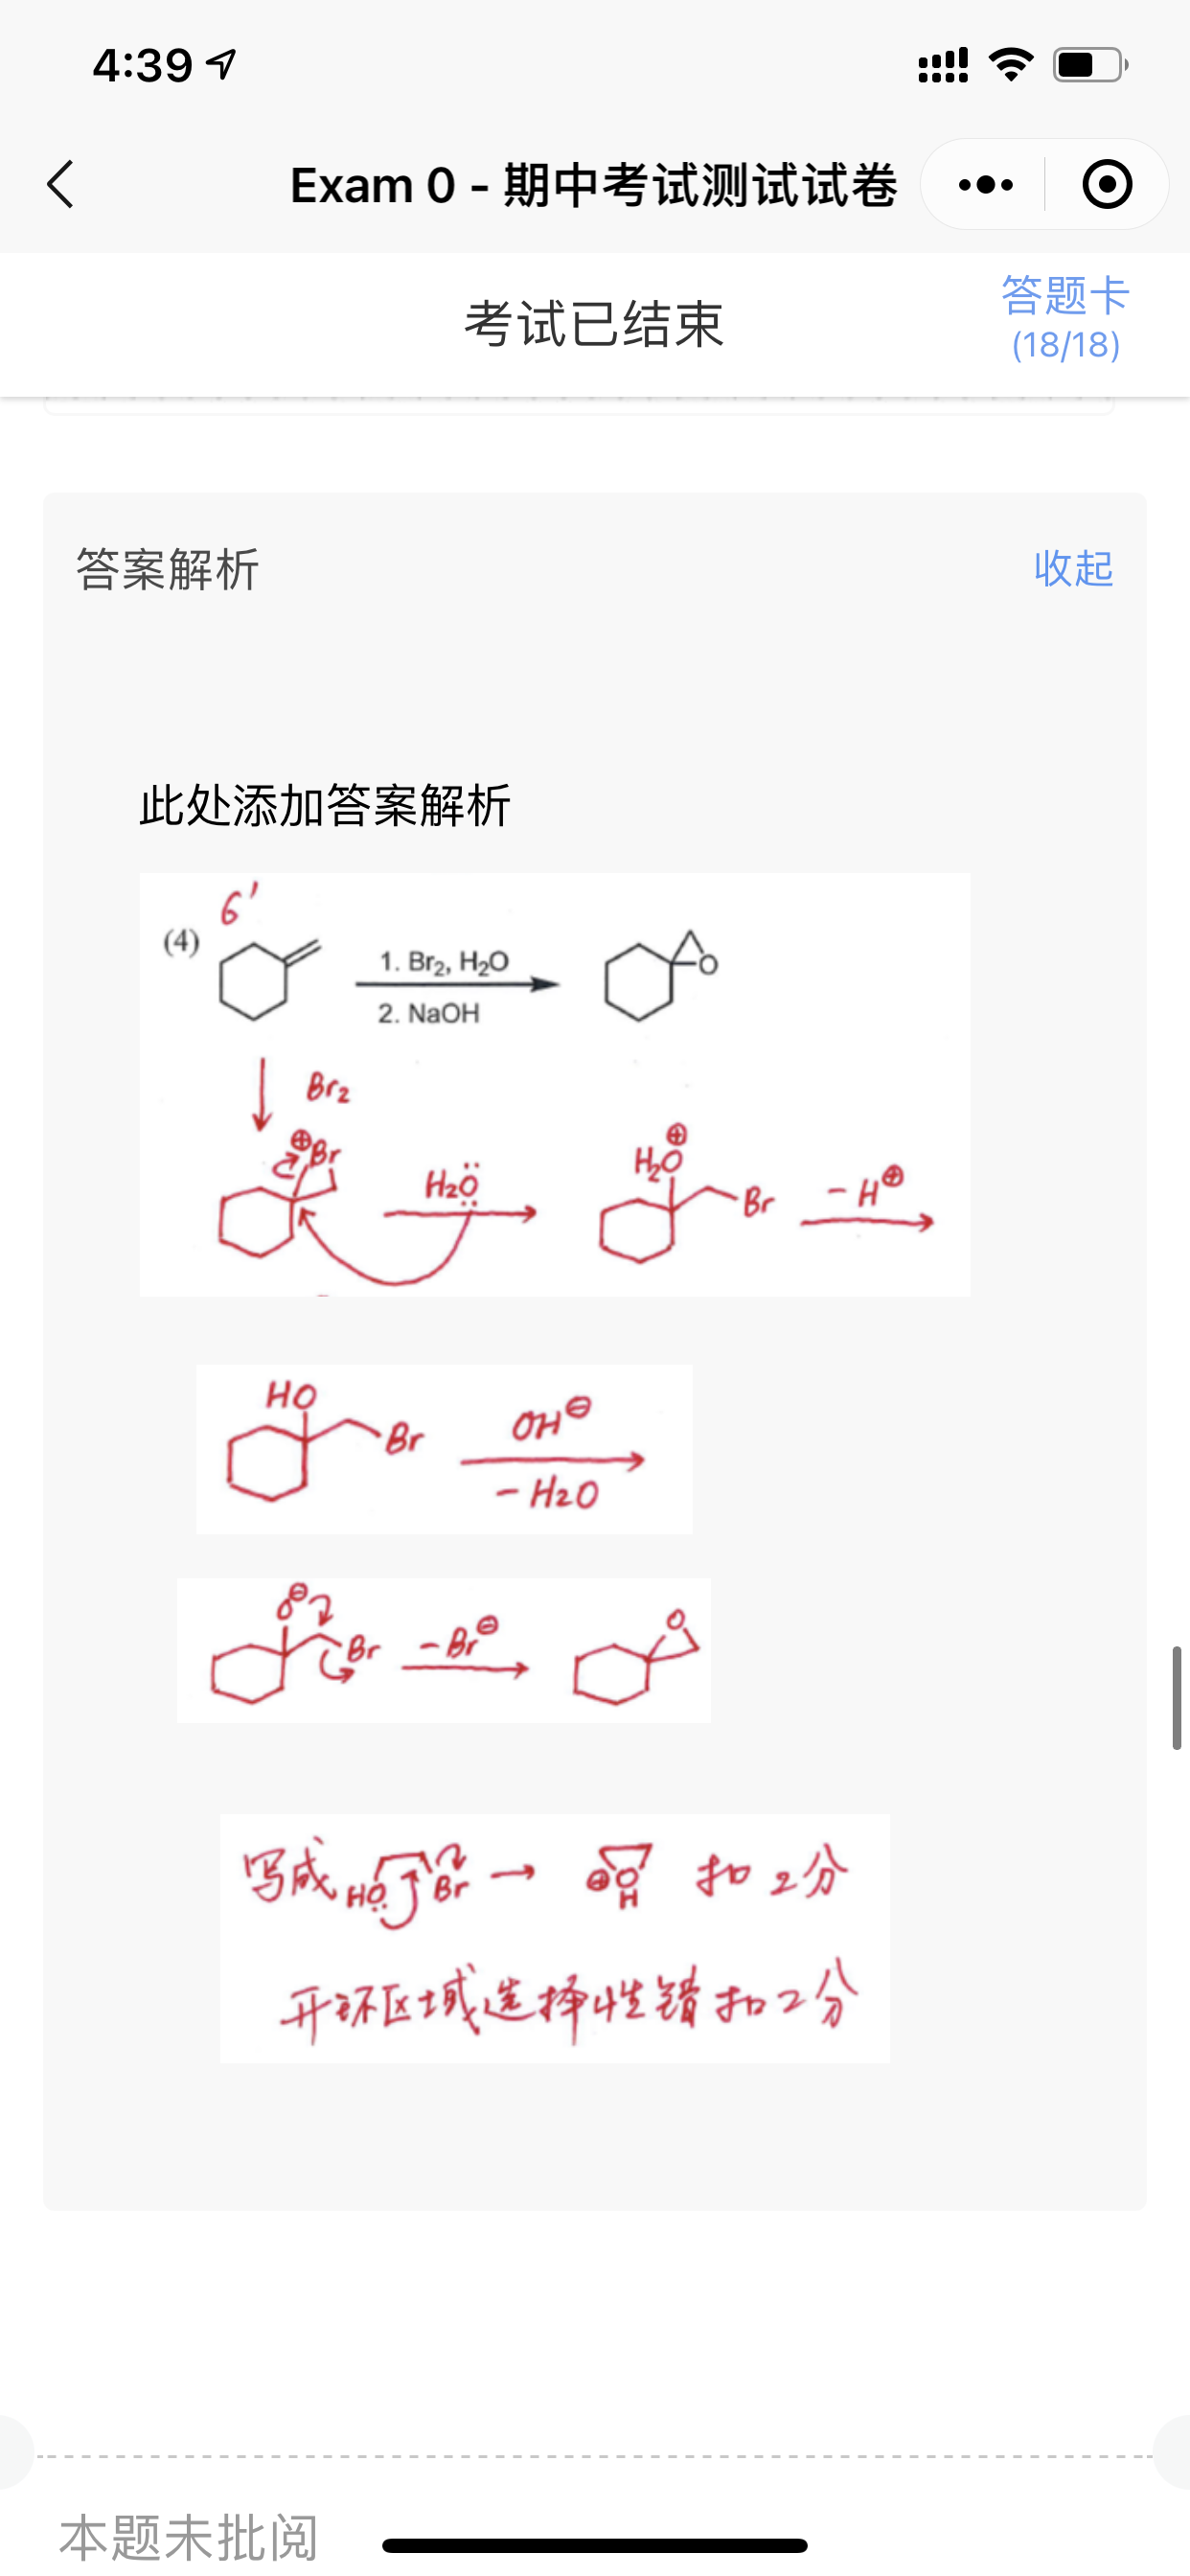 4:39
Exam 0 - 期中考试测试试卷
考试已结束
答题卡
(18/18)
答案解析
收起
此处添加答案解析
6'
(4)
1. Br₂, H₂O
2. NaOH
O
Br₂
⊕Br
H₂Ö
H₂O⊕
Br
- H⊕
HO
Br
OH⊖
- H₂O
O⊖
Br
- Br⊖
O
写成 HO Br → ⊕OH 扣2分
开环区域选择性错扣2分
本题未批阅